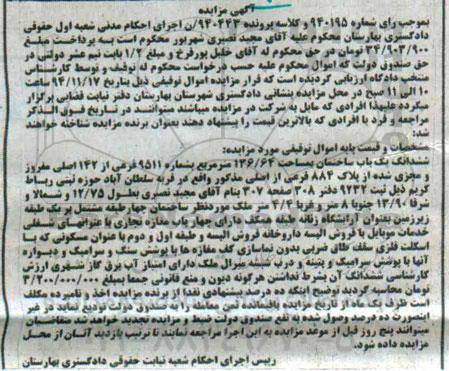 آگهی مزایده
بموجب رای شماره ۹۴۰۱۹۵ و کلاسه پرونده ۹۴۰۴۴۳/ن اجرای احکام مدنی شعبه اول حقوقی
دادگستری بهارستان محکوم علیه آقای مجید نصیری شهرپور محکوم است به پرداخت مبلغ
۳۴/۹۰۳/۹۰۰ تومان در حق محکوم له آقای خلیل پورفرخ و مبلغ ۱/۲ بابت نیم عشر دولتی در
حق صندوق دولت که اموال محکوم علیه حسب درخواست محکوم له توقیف و توسط کارشناس
منتخب دادگاه ارزیابی گردیده است که قرار مزایده اموال توقیفی ذیل بتاریخ ۹۴/۱۱/۱۷ ساعت
۱۰ الی ۱۱ صبح در محل مزایده بنشانی دادگستری شهرستان بهارستان دفتر نیابت قضایی برگزار
میگردد علیهذا افرادی که مایل به شرکت در مزایده میباشند میتوانند در تاریخ فوق الذکر
مراجعه و فرد یا افرادی که بالاترین قیمت را پیشنهاد دهند بعنوان برنده مزایده شناخته خواهند
شد:
مشخصات و قیمت پایه اموال توقیفی مورد مزایده:
ششدانگ یک باب ساختمان بمساحت ۱۳۶/۶۴ مترمربع بشماره ۹۵۱۱ فرعی از ۱۴۲ اصلی مفروز
و مجزی شده از پلاک ۸۸۴ فرعی از اصلی مذکور واقع در قریه سلطان آباد حوزه ثبتی رباط
کریم ذیل ثبت ۹۲۳۲ دفتر ۳۰۸ صفحه ۳۰۷ بنام آقای مجید نصیری بطول ۱۲/۷۵ و شمالا و
شرقا ۱۳/۹۰ جنوبا ۸ متر و غربا ۴/۴ متر ملک موردنظر ساختمان چهارطبقه مشتمل بر یک طبقه
زیرزمین بعنوان آرایشگاه زنانه طبقه همکف دارای چهار باب مغازه تجاری با عنوانهای شغلی
خدمات موبایل با فروش البسه داروخانه فروش البسه و طبقه اول و دوم با عنوان مسکونی که با
اسکلت فلزی سقف طاق ضربی بدون نماسازی کف مغازه ها با پوشش سنگ و سرامیک و دیواره
آنها با پوشش سرامیک و پتینه و درب شیشه میرال ملک دارای امتیاز آب برق گاز شهری ارزش
کارشناسی ششدانگ آن بشرط نداشتن هرگونه دیون و منع قانونی جمعا بمبلغ ۳/۲۰۰/۰۰۰/۰۰۰
تومان محاسبه گردید توضیح اینکه ده درصد پیشنهادی نقدا از برنده مزایده اخذ و نامبرده مکلف
است ظرف یک ماه از تاریخ مزایده باقیمانده ثمن معامله را به صندوق دولت تودیع نماید در غیر
اینصورت ده درصد وصول شده به نفع صندوق دولت ضبط و مزایده تجدید خواهد شد متقاضیان
میتوانند پنج روز قبل از موعد مزایده به این اجرا مراجعه نمایند تا ترتیب بازدید آنان از محل
مزایده داده شود.
رییس اجرای احکام شعبه نیابت حقوقی دادگستری بهارستان